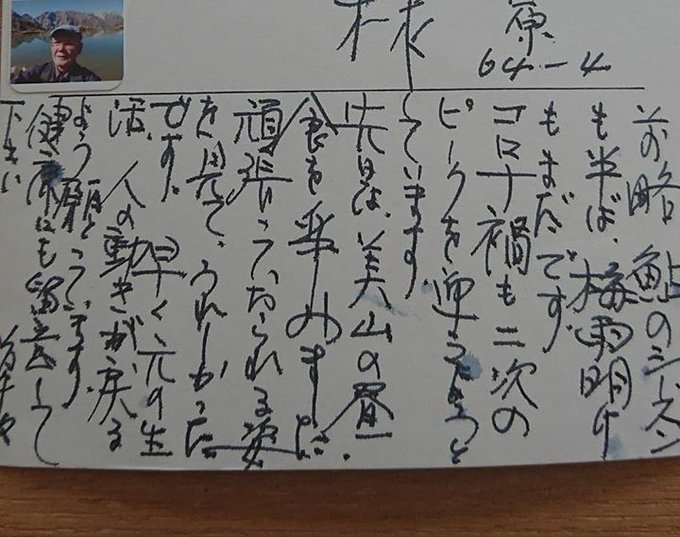 様
原
64-4
前略 鮎のシーズン
も半ば、梅雨明け
もまだです。
コロナ禍も二次の
ピークを迎えようと
しています
先日は、美山の昼
食を楽しみました。
頑張っておられる姿
を見て、うれしかった
です。早く元の生
活、人の動きが戻る
よう願っています。
健康にも留意して
下さい 草々